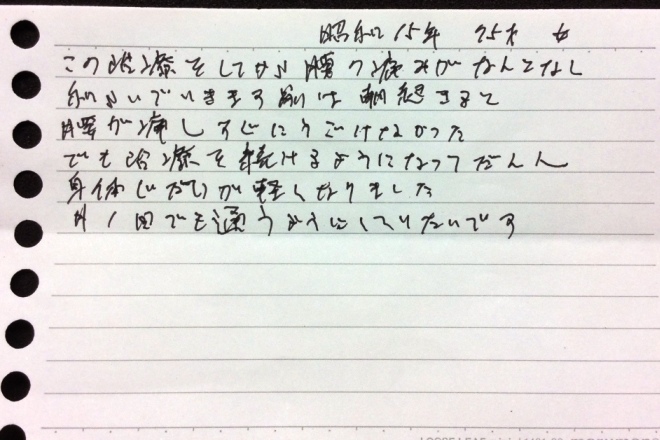 昭和15年 75才 女
この治療をしてから腰の痛みがなんとなし
和らいでいきます 前は朝起きると
腰が痛しすぐにうごけなかった
でも治療を続けるようになってだんだん
身体(じたい)が軽くなりました
月1回でも通うようにしていたいです